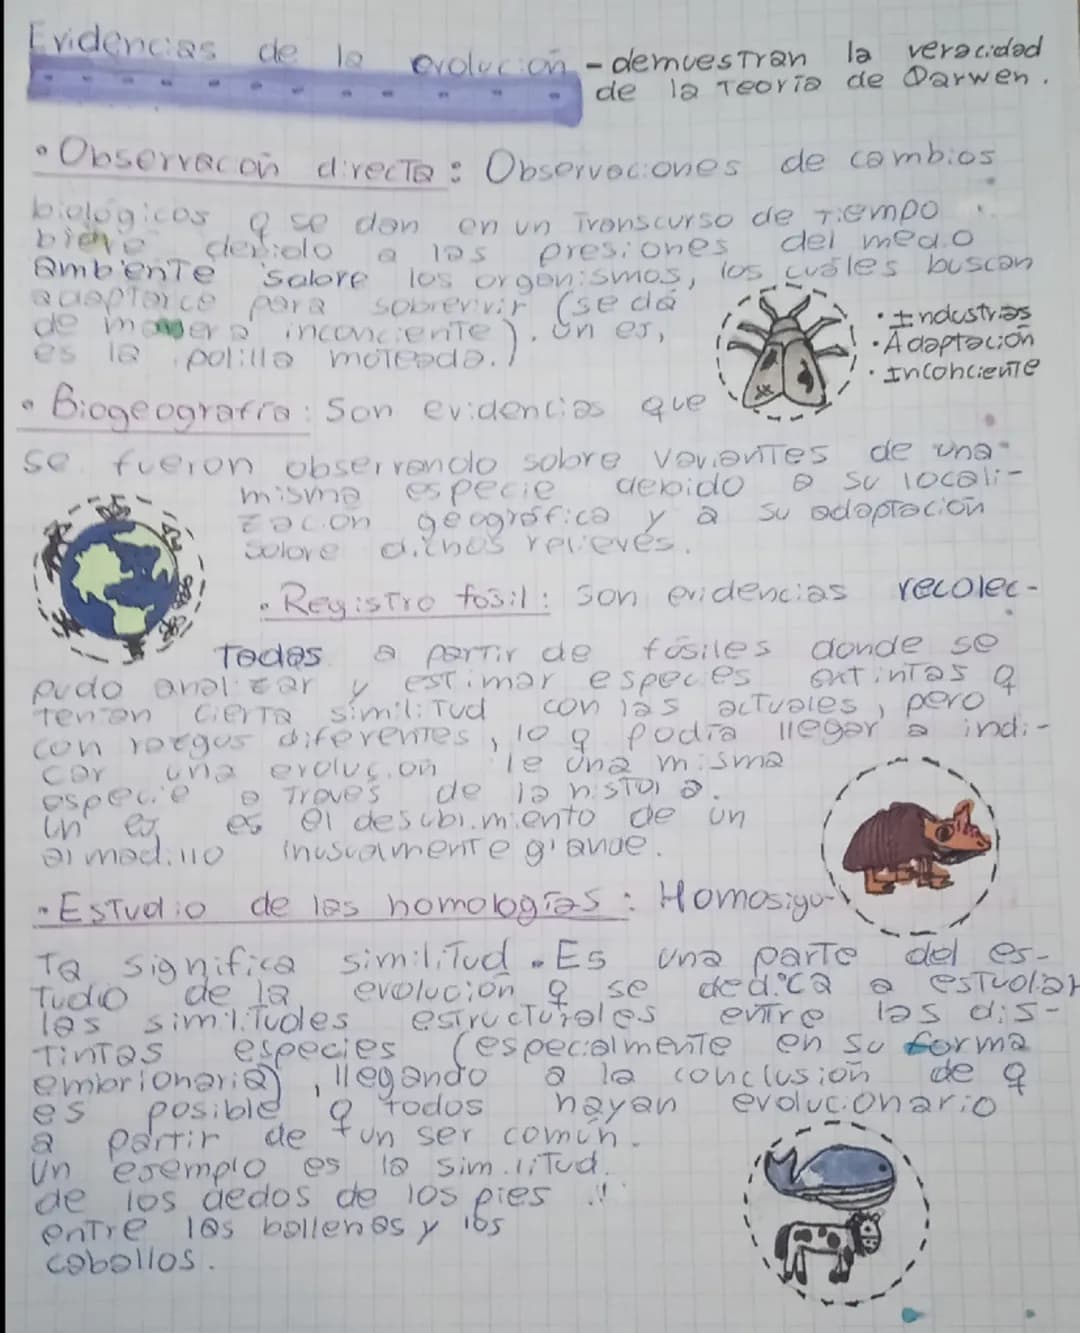 Evidencias de la evolución - demuestran la veracidad
de la Teoría de Darwen.
• Observación directa: Observaciones de cambios
biológicos q se dan en un Transcurso de Tiempo
breve debido a las presiones del medio
Ambiente sobre los organismos, los cuáles buscan
adaptarce para sobrevivir (se da
de manera inconciente). Un ej,
es la polilla moteada.
• Industrias
• Adaptación
• Inconciente
• Biogeografía: Son evidencias que
se fueron observando sobre variantes de una
misma especie debido a su locali-
zación geográfica y a su adaptación
sobre dichos relieves.
• Registro fósil: Son evidencias recolec-
Tadas a partir de fósiles donde se
pudo analizar y estimar especies extintas q
tenían cierta similitud con las actuales, pero
con rasgos diferentes, lo q podía llegar a indi-
car una evolución de una misma
especie a Través de la historia.
Un ej es el descubimiento de un
armadillo inusualmente grande.
• Estudio de las homologías: Homosigo-
Ta significa similitud. Es una parte del es-
Tudio de la evolución q se dedica a estudiar
las similitudes estructurales entre las dis-
TinTas especies (especialmente en su forma
embrionaria), llegando a la conclusión de q
es posible q todos hayan evolucionario
a partir de un ser común.
Un ejemplo es la similitud
de los dedos de los pies
entre las ballenas y los
caballos.